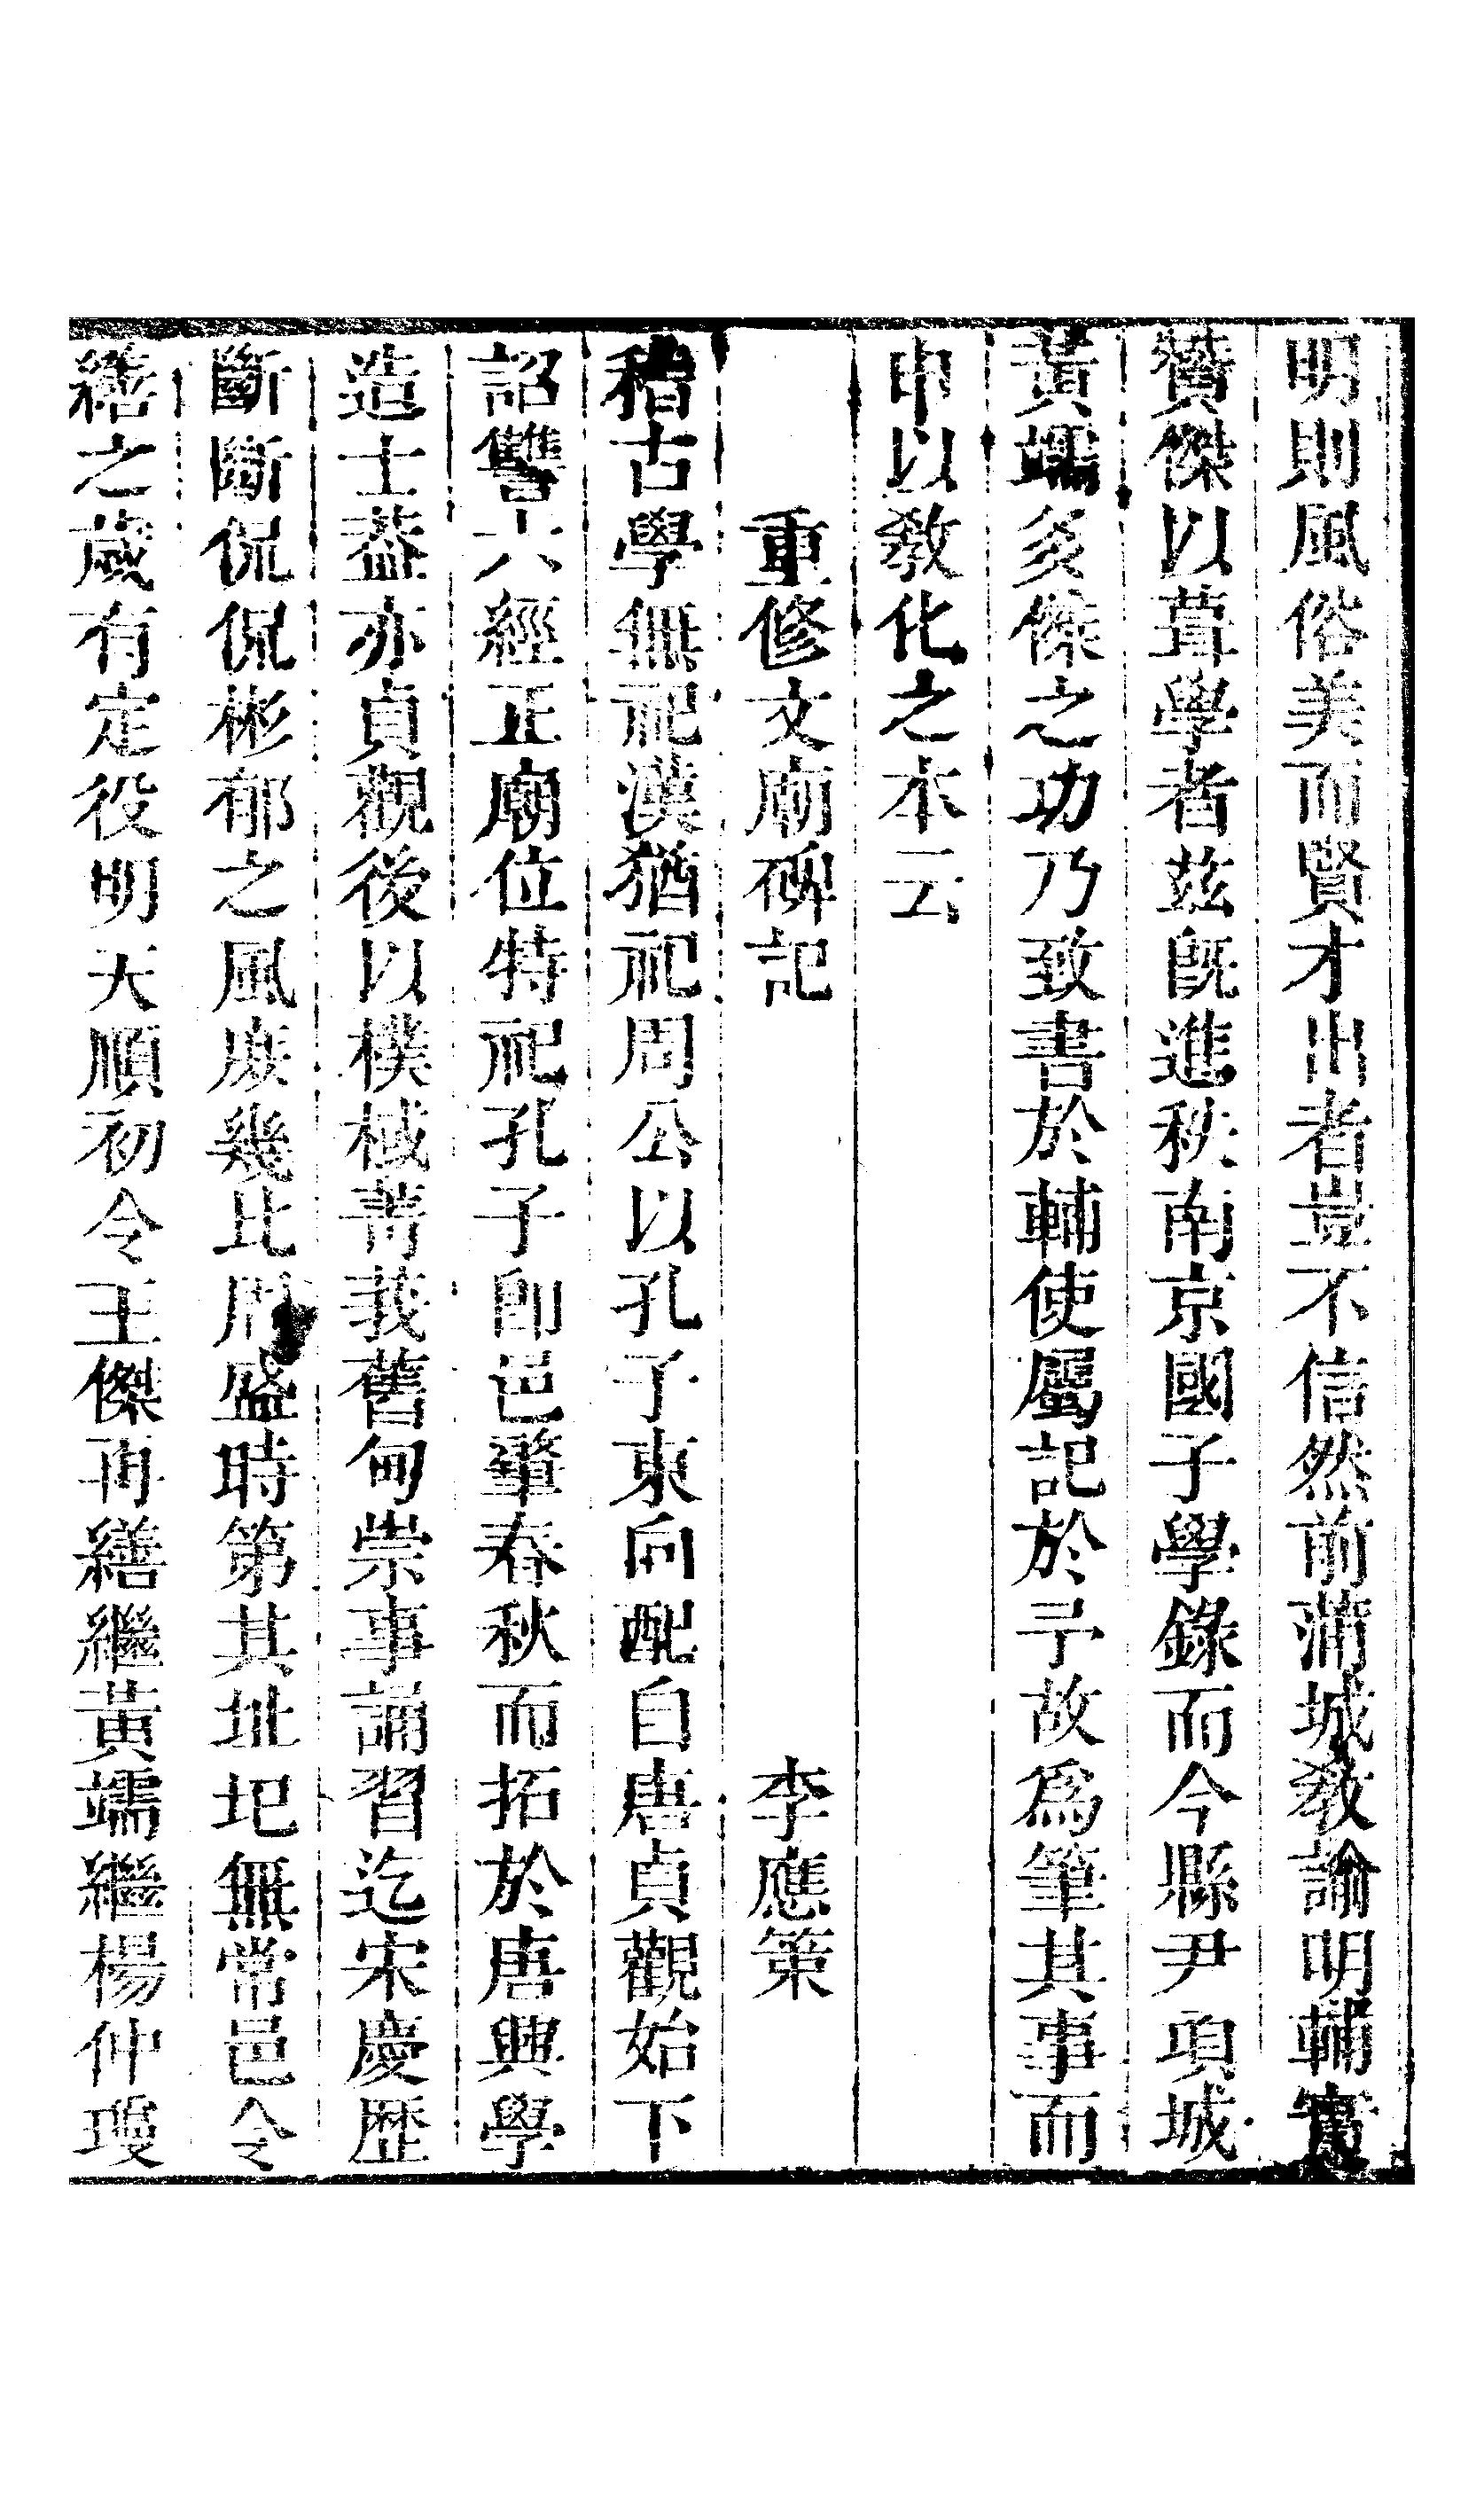 明則風俗美而賢才出者豈不信然前蒲城教諭明輔實
贊傑以葺學者茲旣進秩南京國子學錄而今縣尹項城
黃端亥傑之功乃致書於輔使屬記於予故爲筆其事而
申以敎化之本云
重修文廟碑記　李應策
稽古學無祀漢猶祀周公以孔子東向配自唐貞觀始下
詔讐六經正廟位特祀孔子卽邑肇春秋而拓於唐興學
造士葢亦貞觀後以樸棫菁莪舊甸崇事誦習迄宋慶歷
斷斷侃侃彬郁之風庶幾比周盛時第其址圯無常邑令
繕之葴有定役明天順初令王傑再繕繼黃端繼楊仲瓊